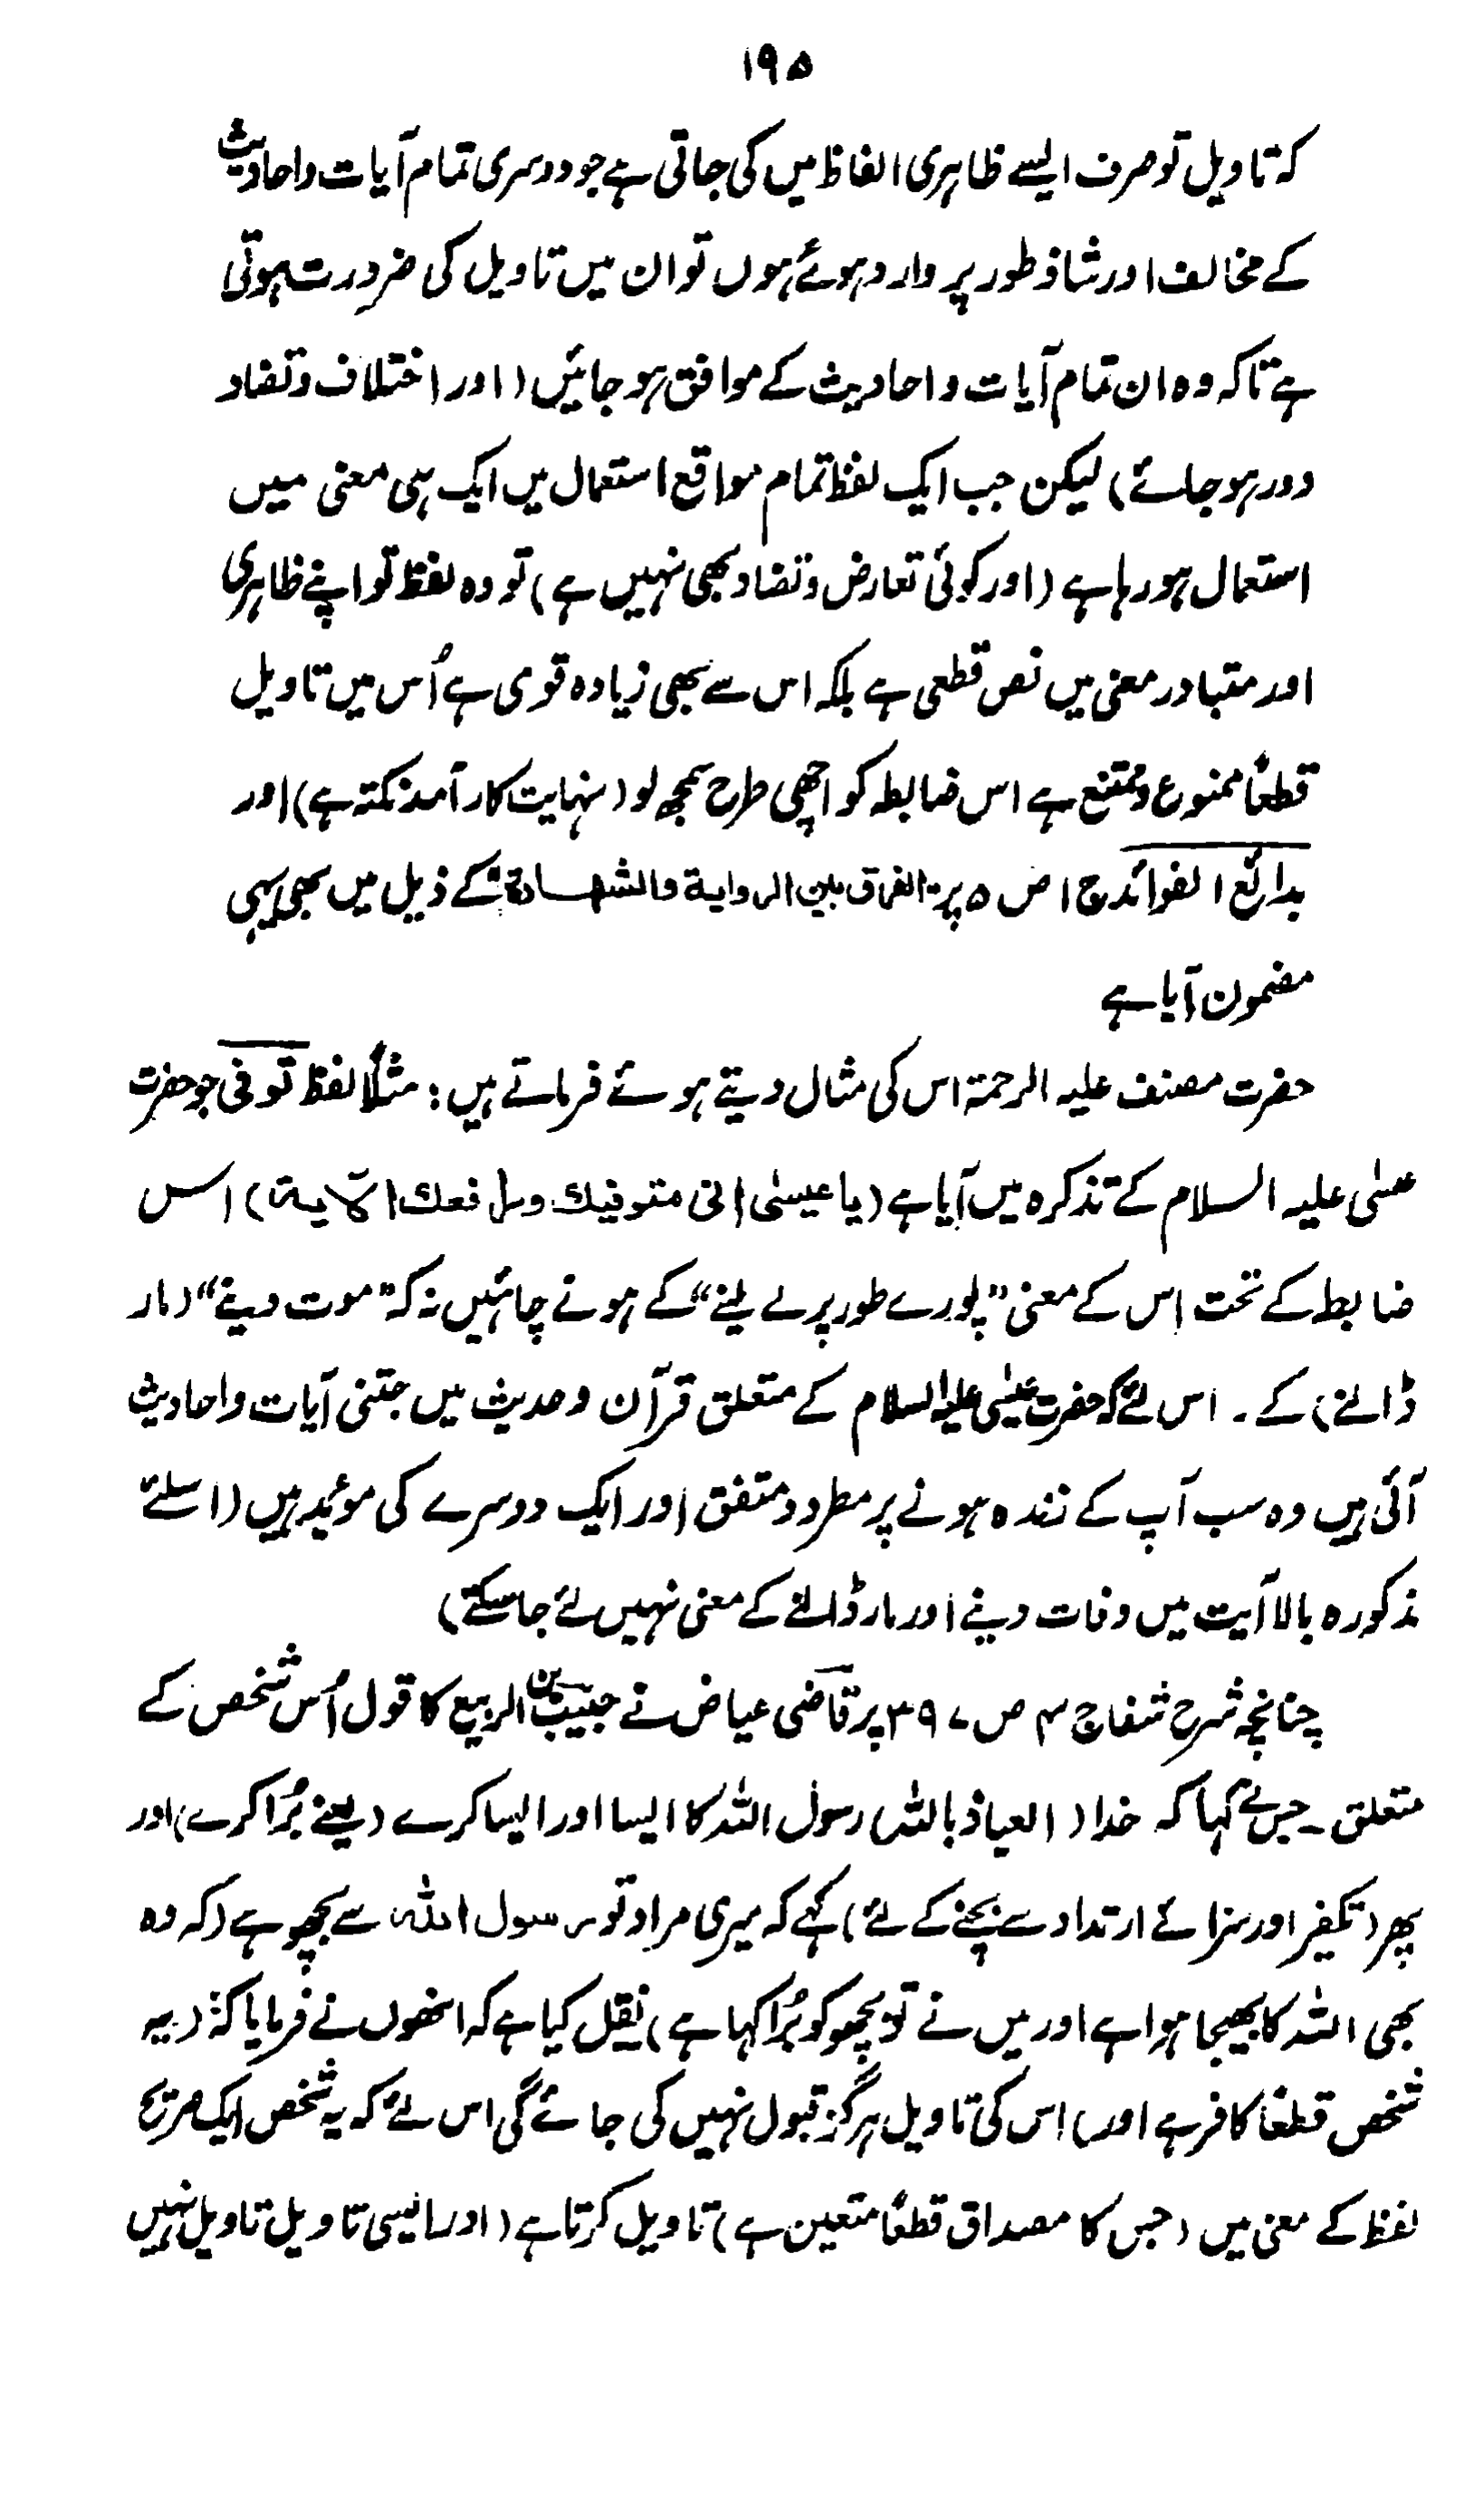 ۱۹۵
کہ تاویل تو صرف ایسے ظاہری الفاظ میں کی جاتی ہے جو دوسری تمام آیات و احادیث
کے مخالف اور شاذ طور پر وارد ہوئے ہوں تو ان میں تاویل کی ضرورت ہوتی
ہے تاکہ وہ ان تمام آیات و احادیث کے موافق ہو جائیں (اور اختلاف و تضاد
دور ہو جائے) لیکن جب ایک لفظ تمام مواقع استعمال میں ایک ہی معنی میں
استعمال ہو رہا ہے (اور کوئی تعارض و تضاد بھی نہیں ہے) تو وہ لفظ تو اپنے ظاہری
اور متبادر معنی میں نص قطعی ہے بلکہ اس سے بھی زیادہ قوی ہے اُس میں تاویل
قطعاً ممنوع و ممتنع ہے اس ضابطہ کو اچھی طرح سمجھ لو (نہایت کارآمد نکتہ ہے) اور
بدائع الفوائد ج ۱ ص ۵ پر "الفرق بین الروایة والشهادة" کے ذیل میں بھی یہی
مضمون آیا ہے
حضرت مصنف علیہ الرحمۃ اس کی مثال دیتے ہوئے فرماتے ہیں: مثلاً لفظ توفی جو حضرت
عیسٰی علیہ السلام کے تذکرہ میں آیا ہے (یا عیسیٰ انی متوفیك ورافعك الآیة) اسس
ضابطہ کے تحت اس کے معنی "پورے طور پر لے لینے" کے ہونے چاہئیں نہ کہ "موت دینے" (مار
ڈالنے) کے۔ اس لئے کہ حضرت عیسٰی علیہ السلام کے متعلق قرآن و حدیث میں جتنی آیات و احادیث
آئی ہیں وہ سب آپ کے زندہ ہونے پر مطرد و متفق اور ایک دوسرے کی موئید ہیں (اسلئے
مذکورہ بالا آیت میں وفات دینے اور مار ڈالنے کے معنی نہیں لئے جا سکتے)
چنانچہ شرح شفا ج ۴ ص ۳۹۷ پر قاضی عیاض نے حبیب بن الربیع کا قول اُس شخص کے
متعلق۔ جس نے کہا کہ خدا (العیاذ باللہ) رسول اللہ کا ایسا اور ایسا کرے (یعنے بُرا کرے) اور
پھر (تکفیر اور سزائے ارتداد سے بچنے کے لئے) کہے کہ میری مراد تو رسول اللہ سے بچھو ہے (کہ وہ
بھی اللہ کا بھیجا ہوا ہے اور میں نے تو بچھو کو بُرا کہا ہے) نقل کیا ہے کہ انھوں نے فرمایا کہ: (یہ
شخص قطعاً کافر ہے اور) اس کی تاویل ہرگز قبول نہیں کی جائے گی اس لئے کہ یہ شخص ایک صریح
لفظ کے معنی میں (جس کا مصداق قطعاً متعین ہے) تاویل کرتا ہے (اور ایسی تاویل تاویل نہیں